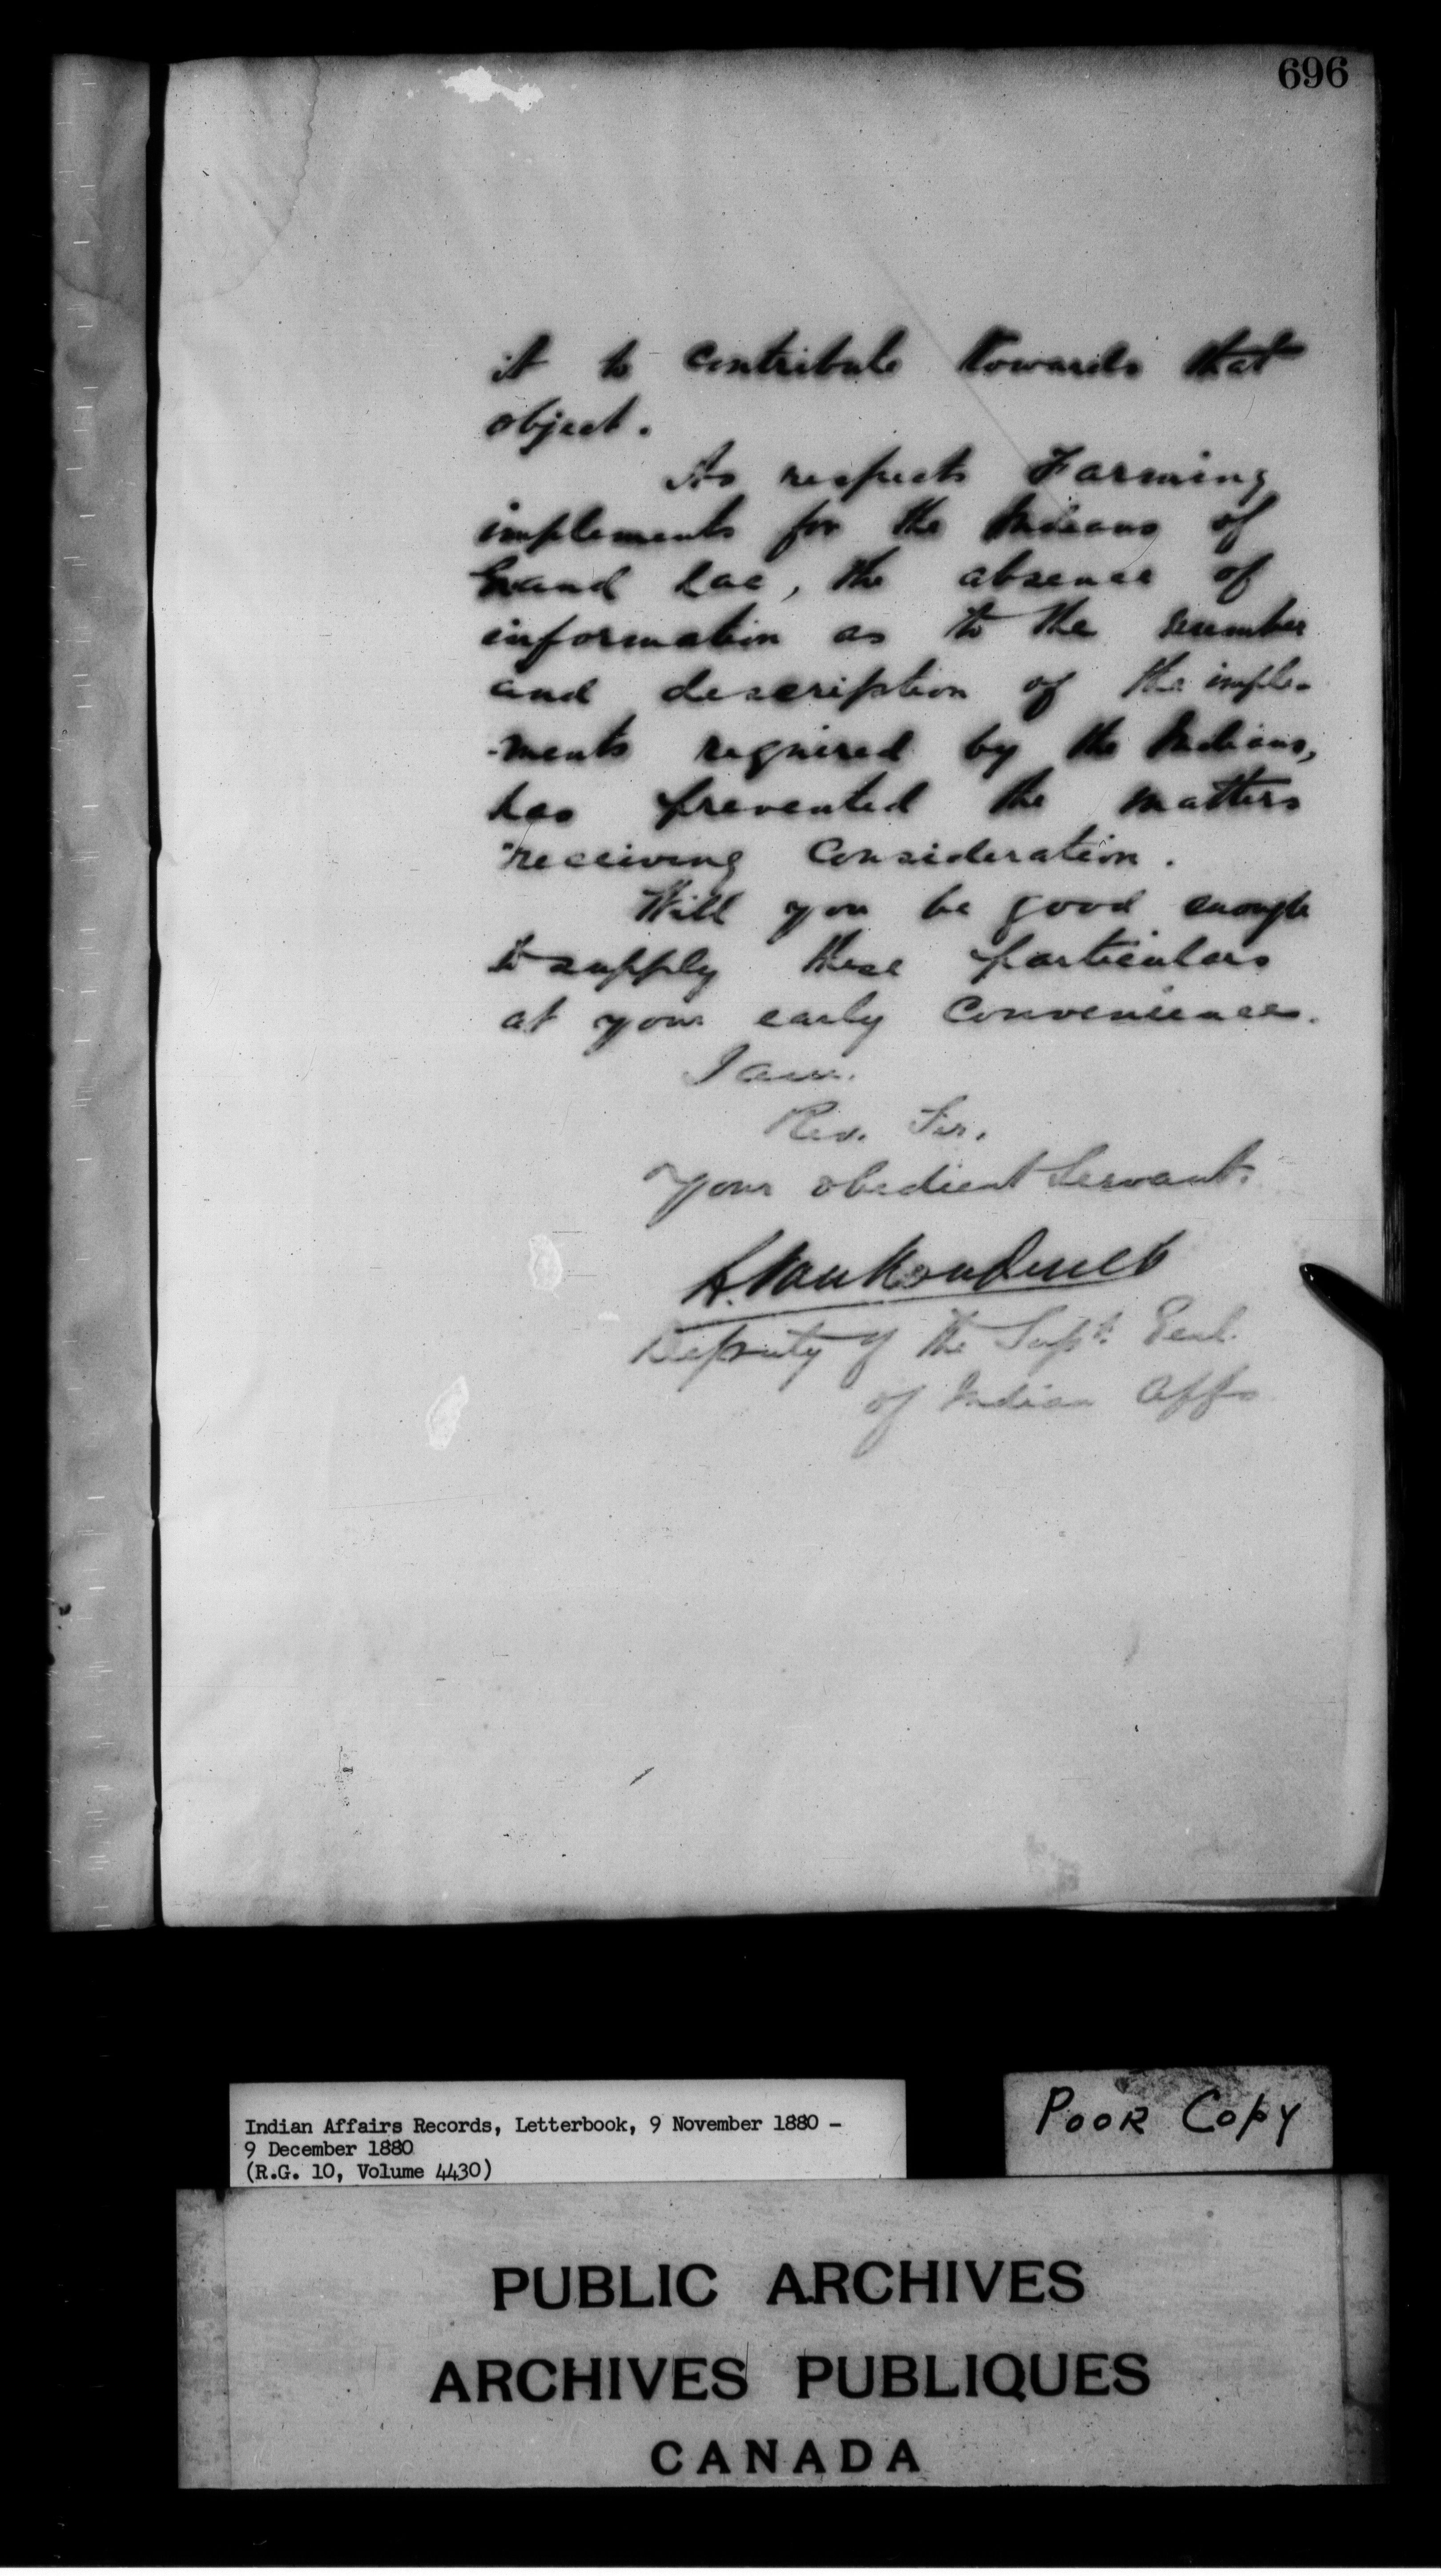 696
it to contribute towards that
object.
As respects Farming
implements for the Indians of
Grand Lac, the absence of
information as to the number
and description of the imple-
-ments required by the Indians,
has prevented the matters
receiving Consideration.
Will you be good enough
to supply these particulars
at your early Convenience.
I am.
Rev. Sir.
Your obedient Servant.
L. VanKoughnet
Deputy of the Supt. Genl.
of Indian Affs
Indian Affairs Records, Letterbook, 9 November 1880 -
9 December 1880
(R.G. 10, Volume 4430)
POOR COPY
PUBLIC ARCHIVES
ARCHIVES PUBLIQUES
CANADA